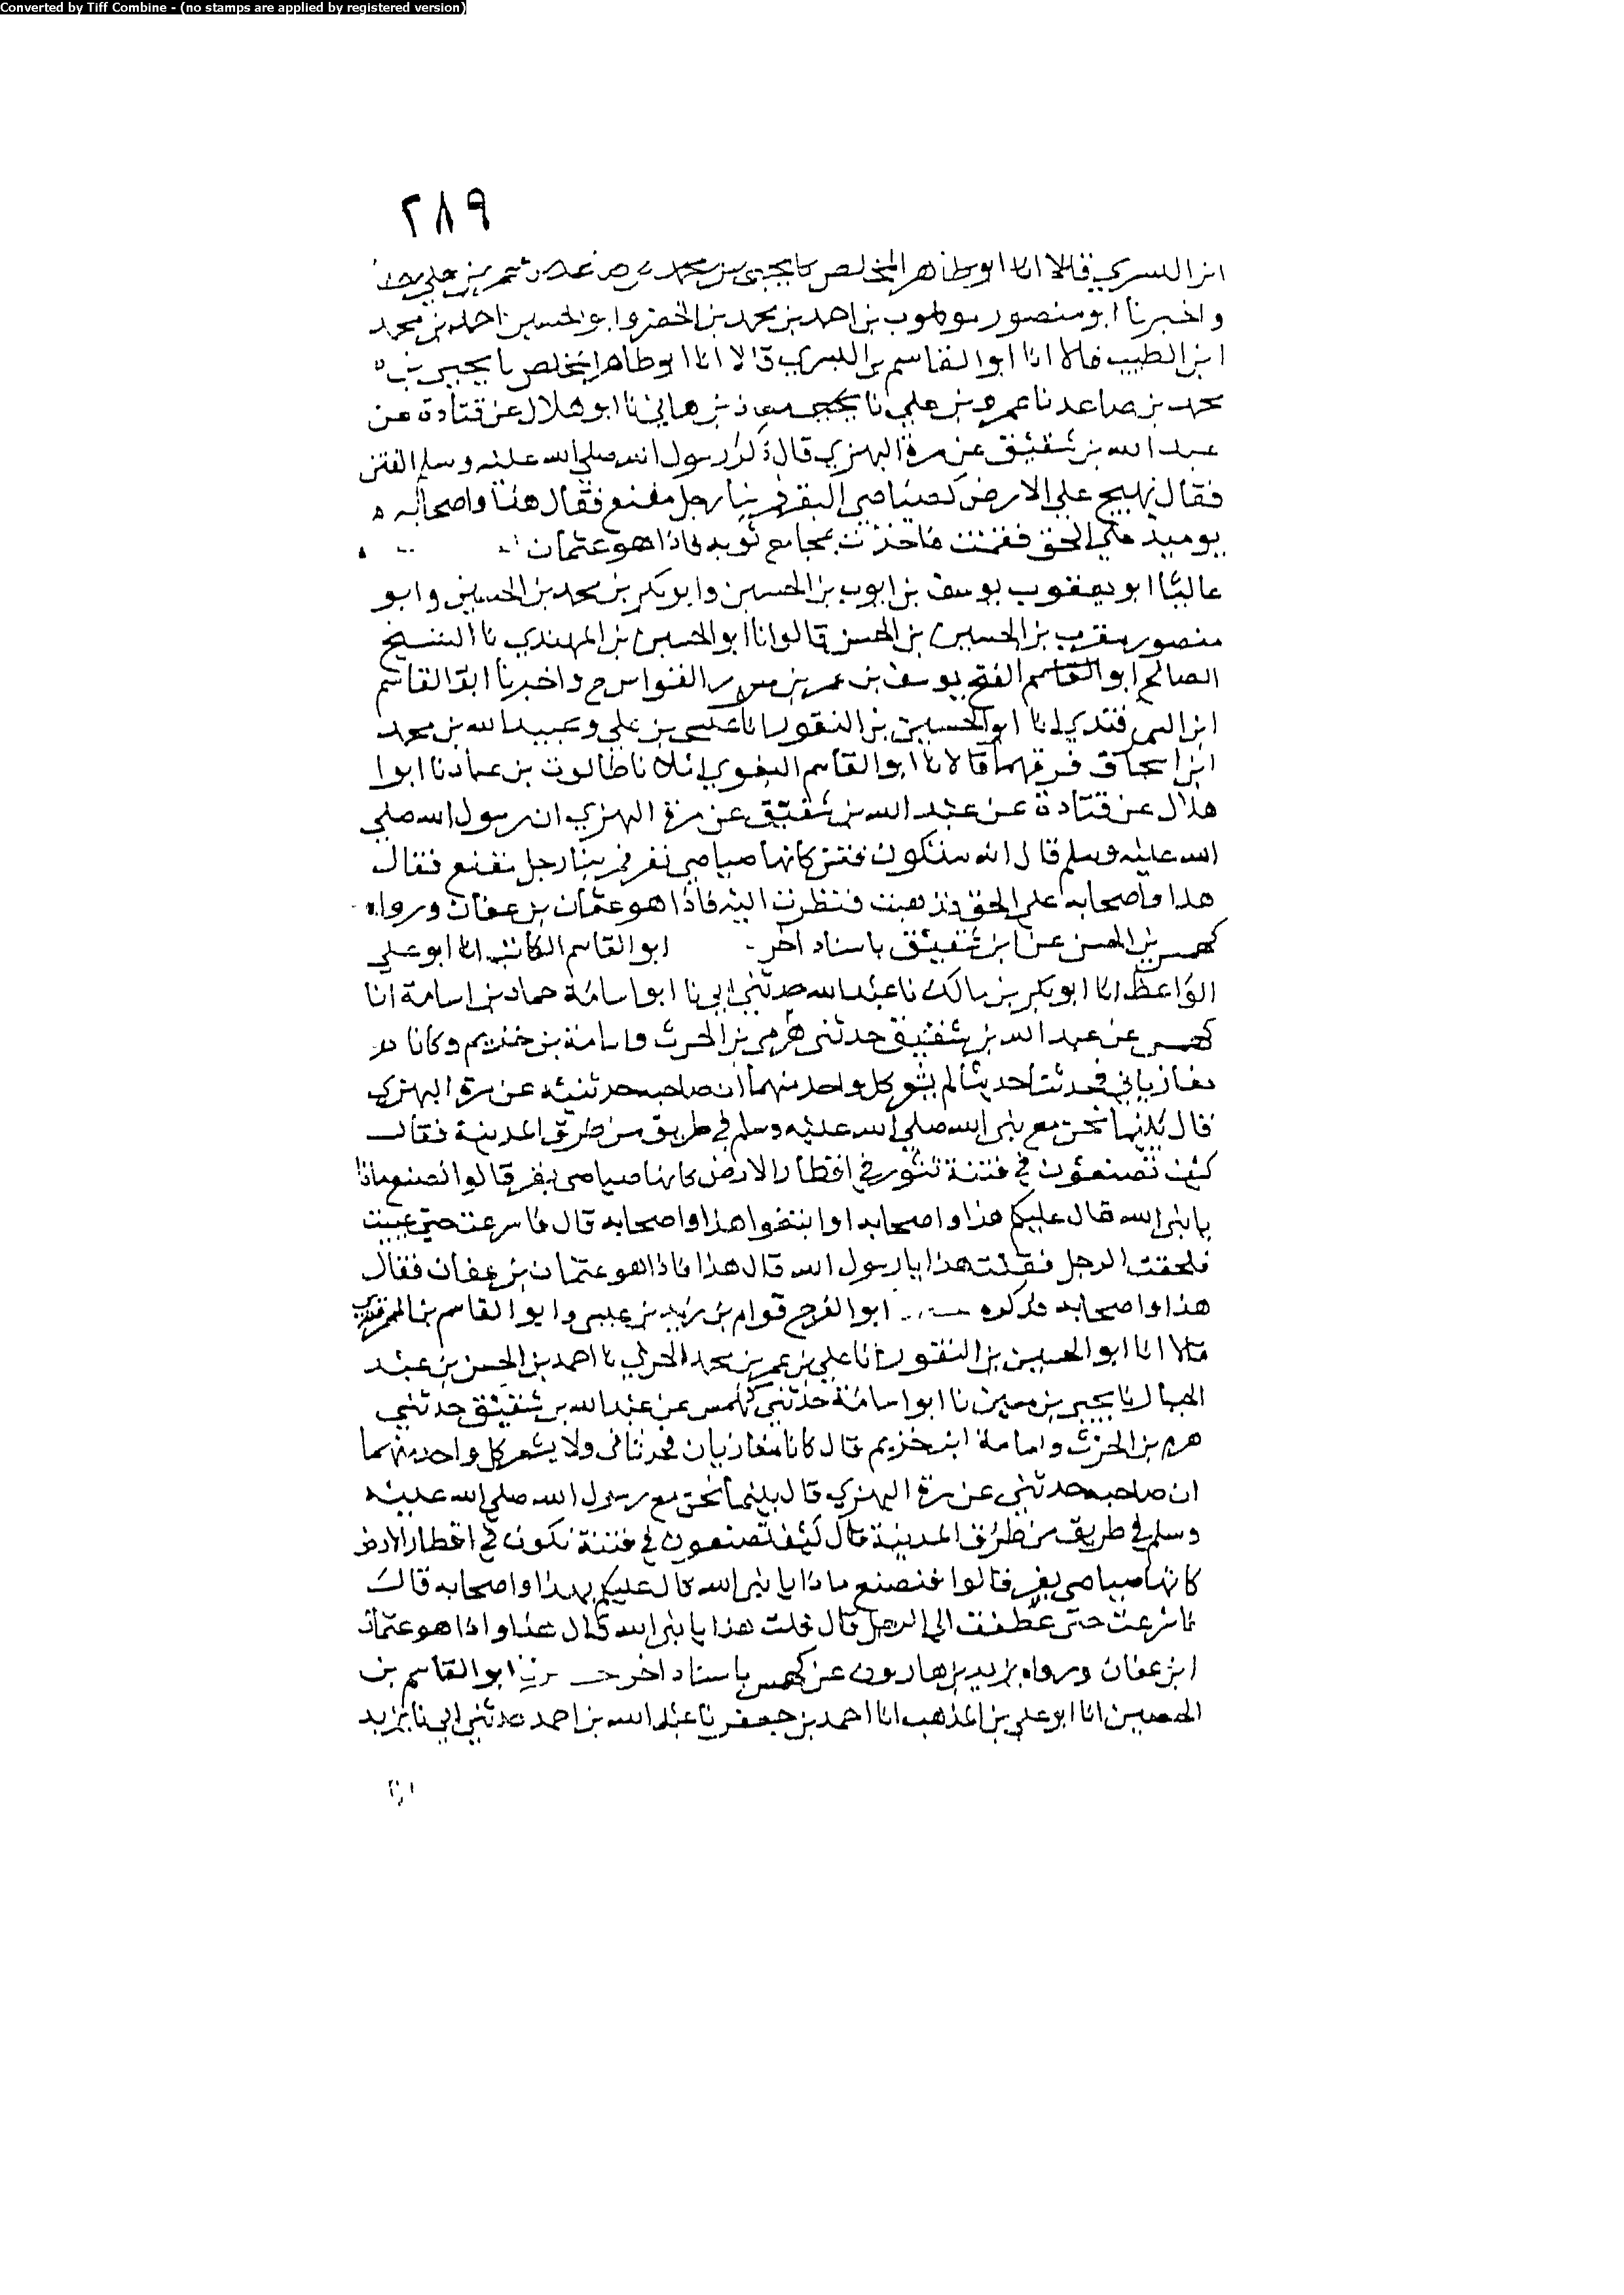 Converted by Tiff Combine - (no stamps are applied by registered version)
٢٨٩
ابن البسري قالا انا ابو طاهر المخلص نا يحيى بن محمد
واخبرنا ابو منصور موهوب بن احمد بن محمد بن الخضر وابو الحسين احمد بن محمد
ابن الطيب قالا انا ابو القاسم بن البسري قالا انا ابو طاهر المخلص نا يحيى بن
محمد بن صاعد نا عمرو بن علي نا بن هاني نا ابو هلال عن قتادة عن
عبد الله بن شقيق عن مرة البهزي قال ذكر رسول الله صلى الله عليه وسلم الفتن
فقال تهيج على الارض كصياصي البقر فمر بنا رجل مقنع فقال هذا واصحابه
يوميذ على الحق فقمت فاخذت بمجامع ثوبه فاذا هو عثمان
عاليًا ابو يعقوب يوسف بن ايوب بن الحسين وابو بكر بن محمد بن الحسين وابو
منصور بن الحسين بن الحسن قالوا انا ابو الحسين بن المهتدي نا الشيخ
الصالح ابو القاسم الفتح يوسف بن عمر بن القواس ح واخبرنا ابو القاسم
ابن السمرقندي انا ابو الحسين بن النقور انا عيسى بن علي وعبيد الله بن محمد
ابن اسحاق فرقهما قالا نا ابو القاسم البغوي املا نا طالوت بن عباد نا ابوا
هلال عن قتادة عن عبد الله بن شقيق عن مرة البهزي ان رسول الله صلى
الله عليه وسلم قال انه ستكون فتن كانها صياصي بقر فمر بنا رجل مقنع فقال
هذا واصحابه على الحق فذهبت فنظرت اليه فاذا هو عثمان بن عفان ورواه
كهمس بن الحسن عن ابن شقيق باسناد اخر ابو القاسم الكاتب انا ابو علي
الواعظ انا ابو بكر بن مالك نا عبد الله حدثني ابي نا ابو اسامة حماد بن اسامة انا
كهمس عن عبد الله بن شقيق حدثني هرمي بن الحرث واسامة بن خزيم وكانا
يغازيان فحدثنا حديثا لم يشعر كل واحد منهما ان صاحبه حدثنيه عن مرة البهزي
قال بينما نحن مع نبي الله صلى الله عليه وسلم في طريق من طرق المدينة فقال
كيف تصنعون في فتنة تثور في اقطار الارض كانها صياصي بقر قالوا نصنع ماذا
يا نبي الله قال عليكم هذا واصحابه او اتبعوا هذا واصحابه قال فاسرعت حتى عييت
فلحقت الرجل فقلت هذا يا رسول الله قال هذا فاذا هو عثمان بن عفان فقال
هذا واصحابه فذكره ابو الفرج قوام بن زيد بن عيسى وابو القاسم بن السمرقندي
قالا انا ابو الحسين بن النقور انا علي بن عمر بن محمد الحربي نا احمد بن الحسن بن عبد
الجبار نا يحيى بن معين نا ابو اسامة حدثني كهمس عن عبد الله بن شقيق حدثني
هرم بن الحرث واسامة ابن خزيم قال كانا مغازيان فحدثاني ولا يشعر كل واحد منهما
ان صاحبه حدثني عن مرة البهزي قال بينما نحن مع رسول الله صلى الله عليه
وسلم في طريق من طرق المدينة قال كيف تصنعون في فتنة تكون في اقطار الارض
كانها صياصي بقر قالوا فنصنع ماذا يا نبي الله قال عليكم بهذا واصحابه قال
فاسرعت حتى عطفت الى الرجل قال قلت هذا يا نبي الله قال هذا واذا هو عثمان
ابن عفان ورواه يزيد بن هارون عن كهمس باسناد اخر ابو القاسم بن
الحصين انا ابو علي بن المذهب انا احمد بن جعفر نا عبد الله بن احمد حدثني ابي نا يزيد